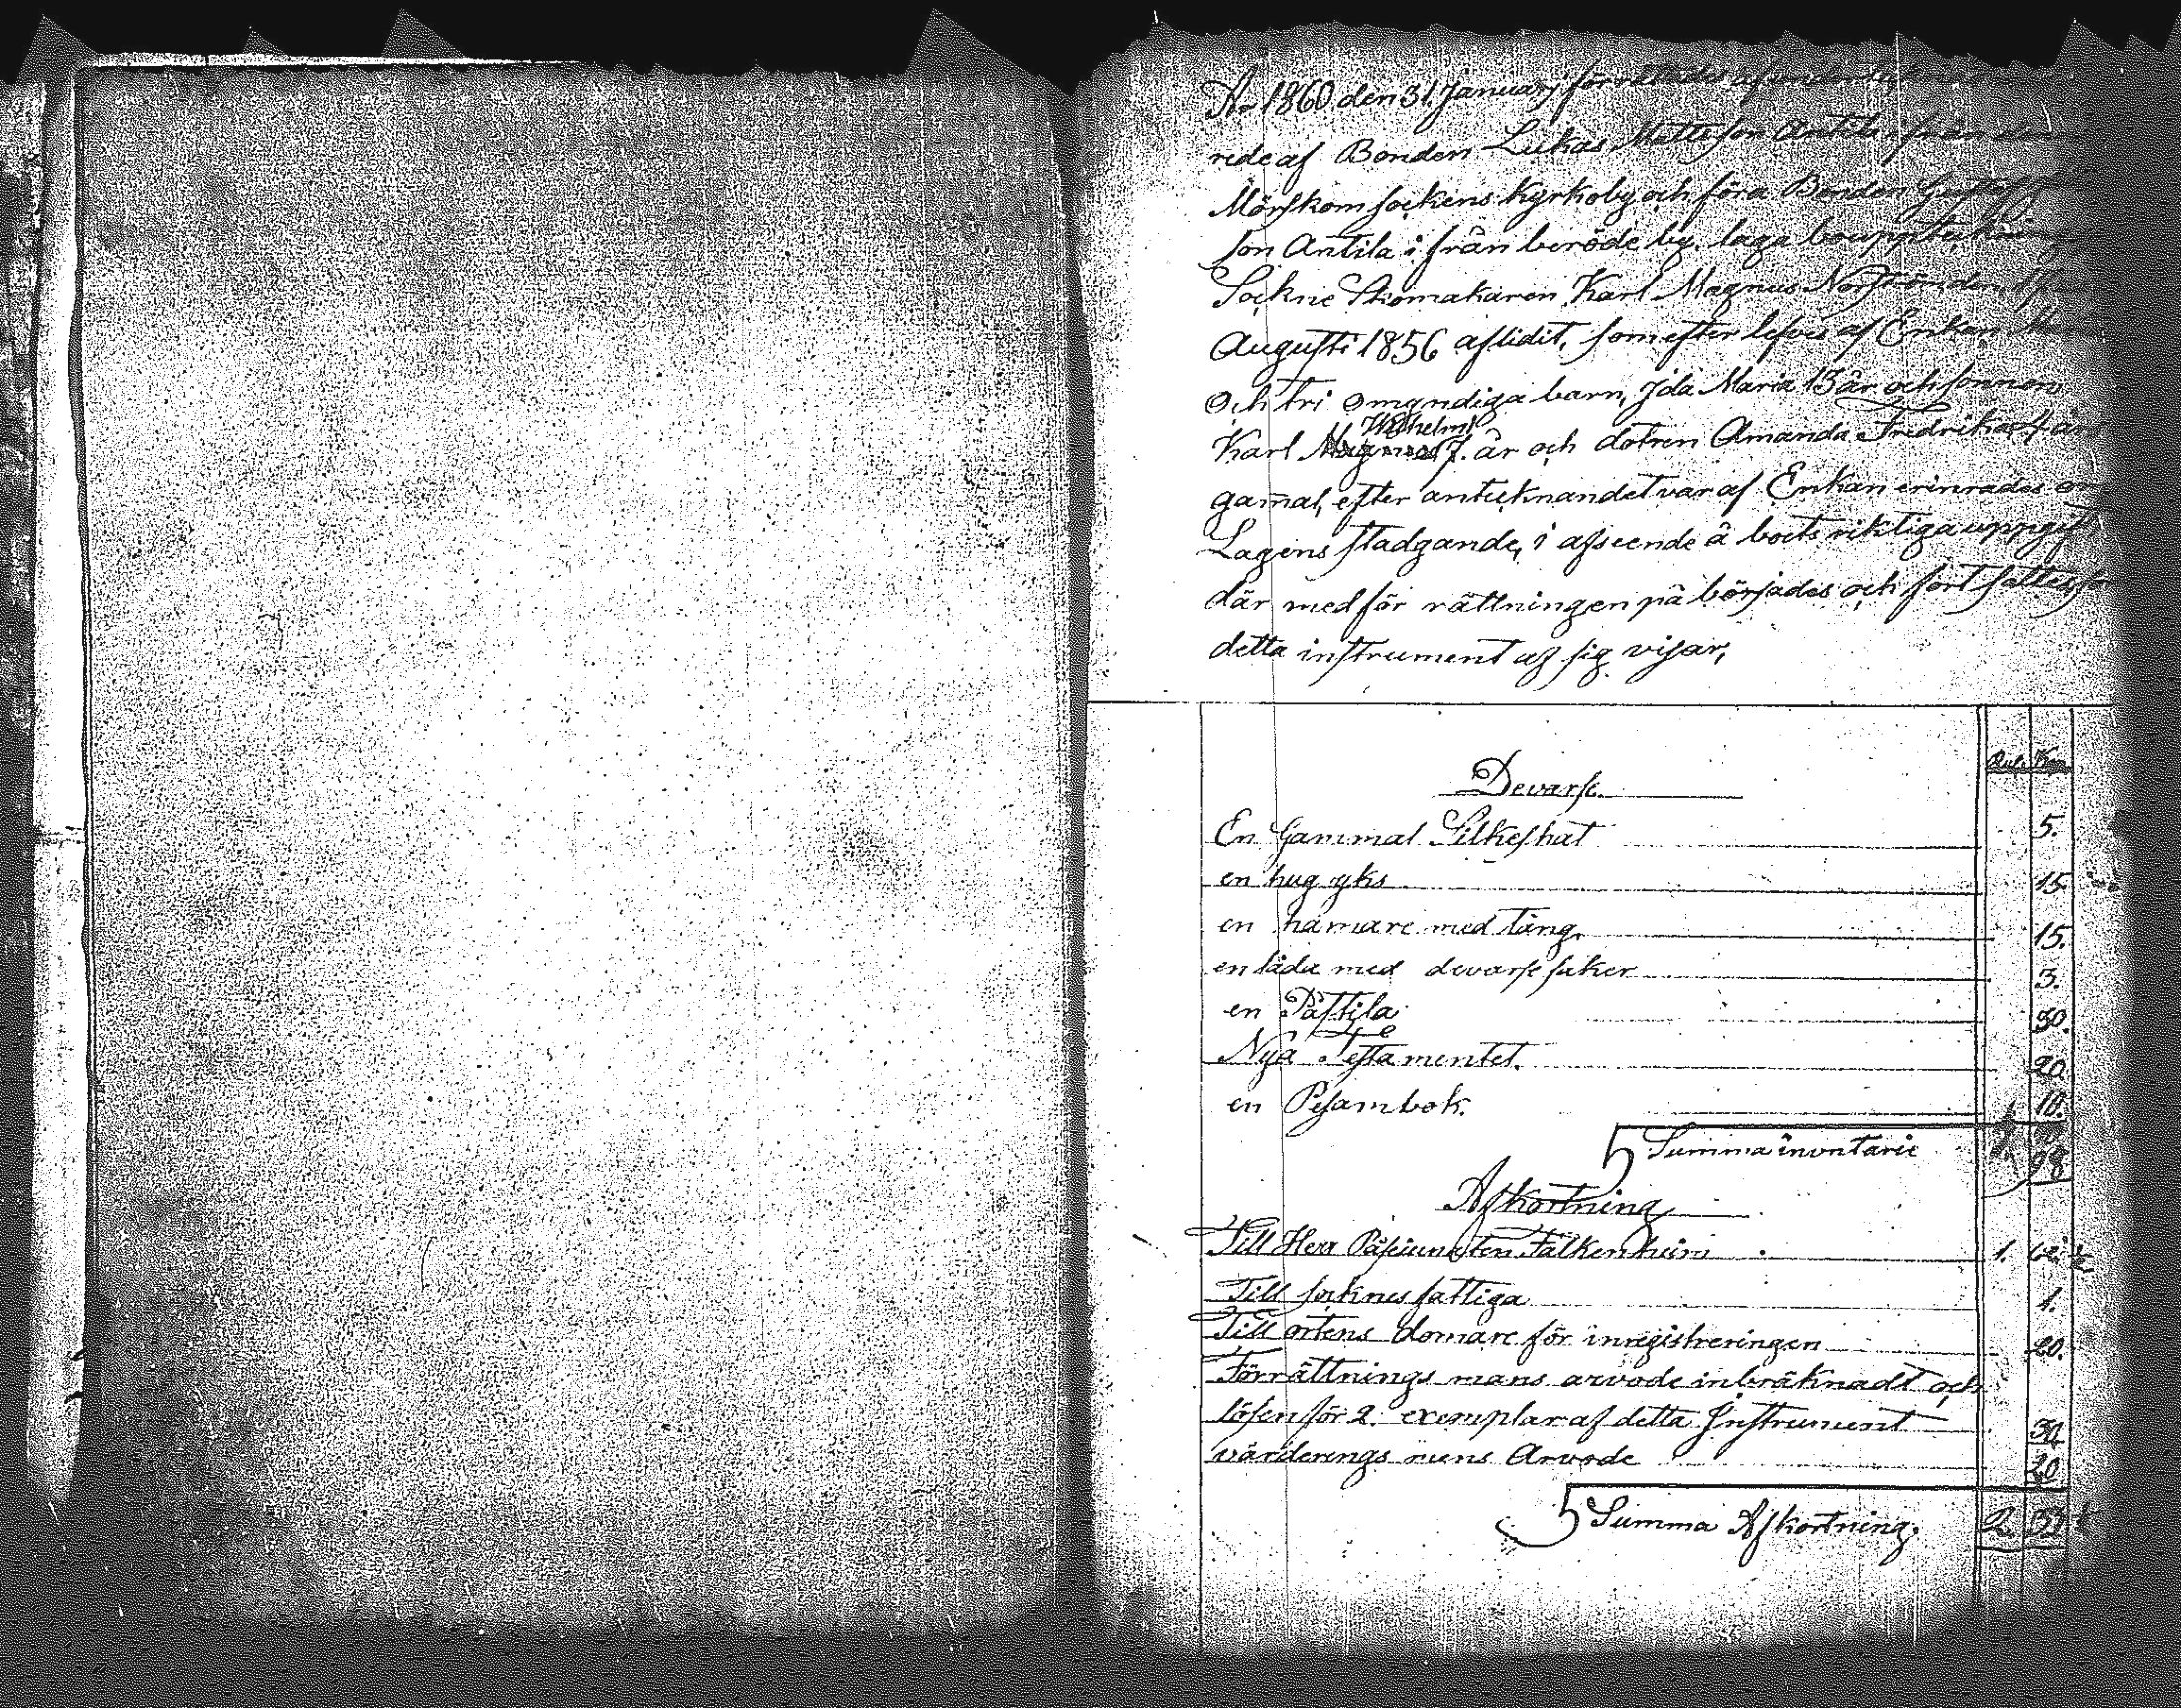 Ao 1860 den 31. January förrättades af
rede af Bonden Lukas Mattsson Antila ifrån
Mörskom sockens Kyrkoby och föra Bonden Gustaf
son Antila i från beröde by. laga bouppteckning
Sockne Skomakaren, Karl Magnus Norström den
Augusti 1856 aflidit, som efter lefves af Enkan
Och tri omyndiga barn, Ida Maria 13 år och sonnen
Wilhelm
Karl 7. år och dotren Amanda Fredrika 4 år
gamal, efter antecknandet var af Enkan erinrades om
Lagens stadgande, i afseende å boets riktiga uppgift
där med för rättningen på börjades och fort sattes
detta instrument af sig visar,
Rub. Kop.
Dewarse.
En Gammal Silkeshat 5.
en hug yks 15.
en hamare med tång. 15.
en låda med dewarse saker 3.
en Påstila 30.
Nya Testamentet. 20.
en Pesambok. 10.
Summa inventarie 98
Afkortning
Till Herr Falkenheim 1.
Till socknes fattiga 1.
Till ortens domare för inregistreringen 20.
Förrättnings mans arvode inbräknadt och
lösen för 2. exemplar af detta Instrument 30.
värderings mens Arvode 20
Summa Afkortning, 2.